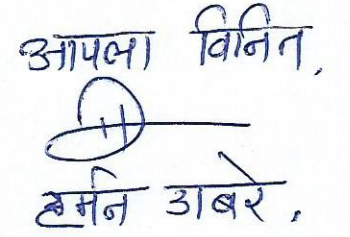 आपला विनित,
हर्मन अबरे.